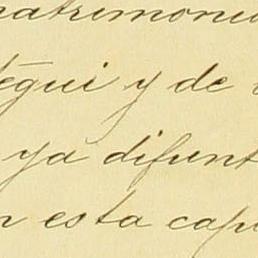 matrimonio
tégui y de
ya difunt
n esta cap